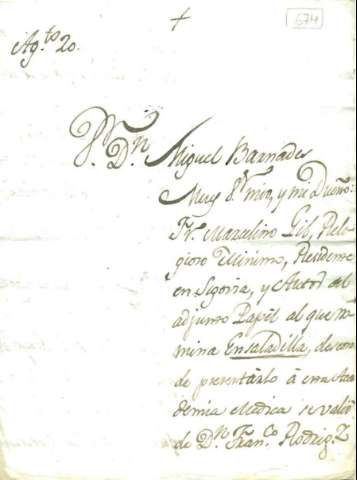 674
Ag.to 20.
S.r D.n Miguel Barnades
Muy S.r mio, y mi Dueño:
Fr. Marcelino Gil, Reli
gioso Minimo, Residente
en Segovia, y Autor del
adjunto Papel al que no
mina Ensaladilla, deseoso
de presentarlo à esta Aca
demia Medica se valió
de D.n Fran.co Rodrig.z